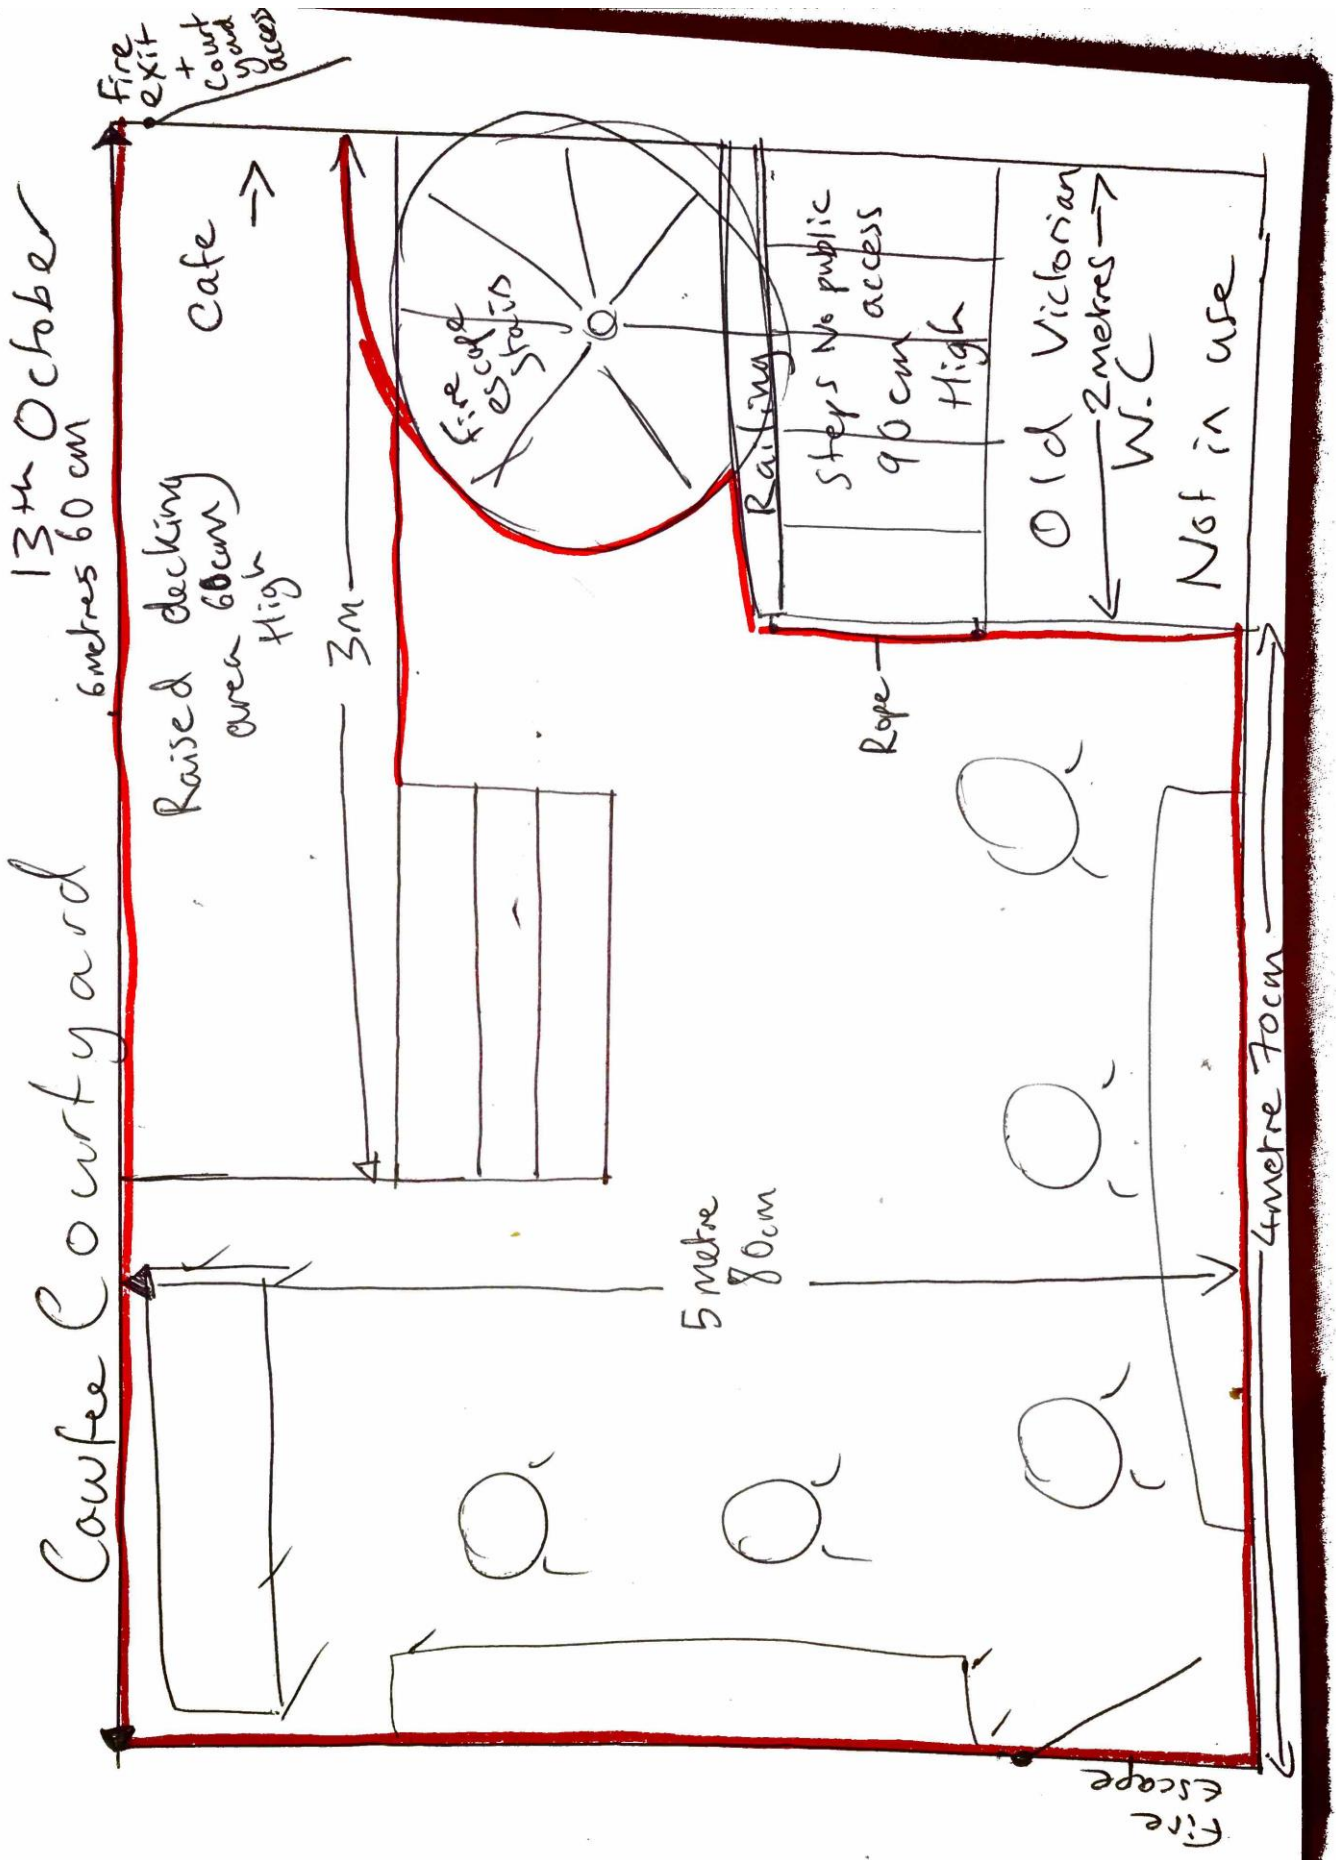 Cowfee Courtyard
13th October
6 metres 60 cm
Fire
exit
+
Court
yard
access
Raised decking
area 60cm
High
Cafe
3m
Fire
escape
stairs
Railing
Steps No public
access
90 cm
High
Rope
Old Victorian
2 metres
W.C
Not in use
5 metre
80cm
4 metre 70cm
Fire
escape